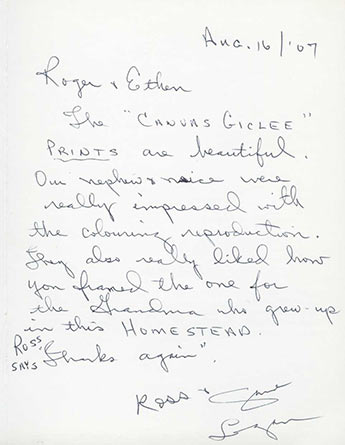 Aug. 16/'07
Roger & Ethen
The "CANVAS GICLEE"
PRINTS are beautiful.
Our nephew & niece were
really impressed with
the colouring reproduction.
They also really liked how
you framed the one for
the Grandma who grew-up
in this HOMESTEAD.
Ross says "Thanks again".
Ross &